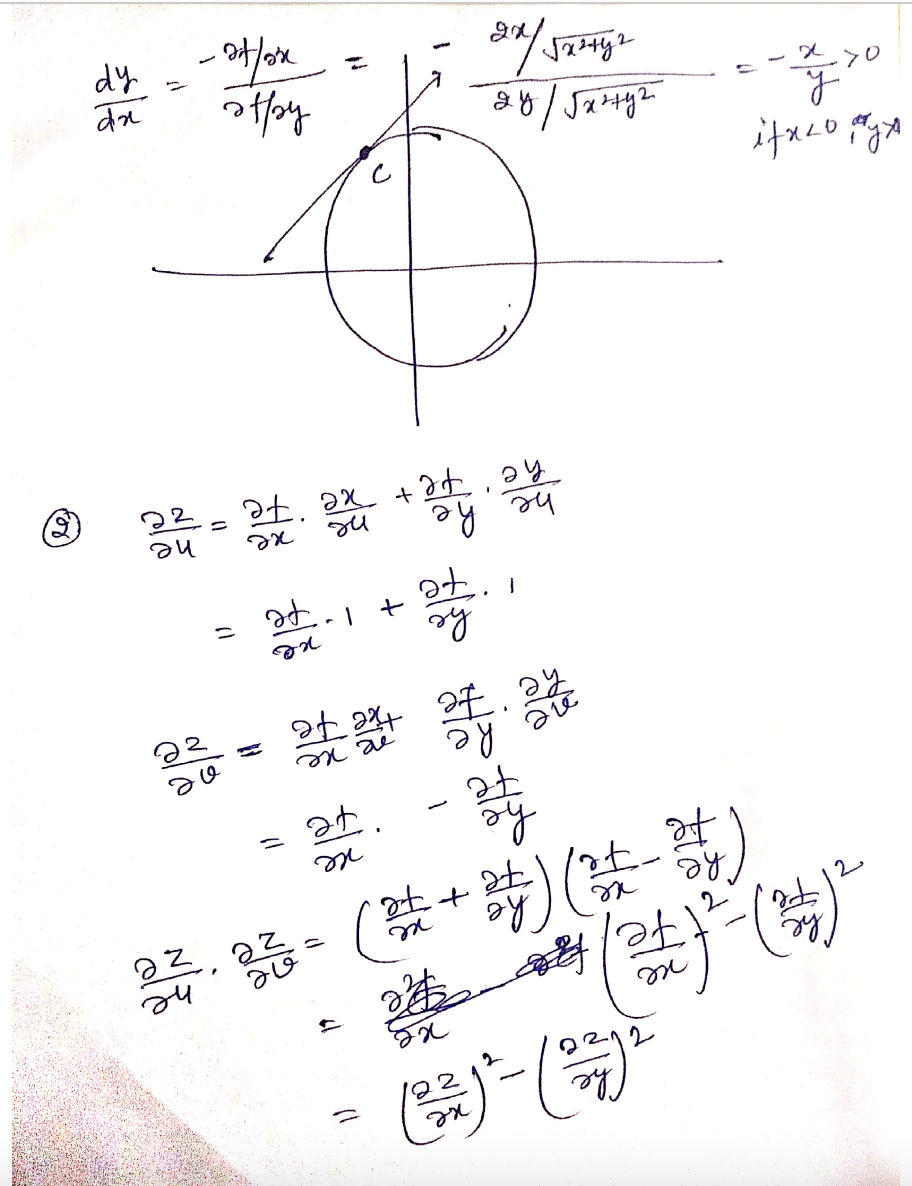 dy/dx = -∂f/∂x / ∂f/∂y = - 2x/√x²+y² / 2y/√x²+y² = -x/y >0
if x<0, y>
C
② ∂z/∂u = ∂f/∂x . ∂x/∂u + ∂f/∂y . ∂y/∂u
= ∂f/∂x . 1 + ∂f/∂y . 1
∂z/∂v = ∂f/∂x ∂x/∂v + ∂f/∂y . ∂y/∂v
= ∂f/∂x . - ∂f/∂y
∂z/∂u . ∂z/∂v = (∂f/∂x + ∂f/∂y) (∂f/∂x - ∂f/∂y)
= (∂f/∂x)² - (∂f/∂y)²
= (∂z/∂x)² - (∂z/∂y)²